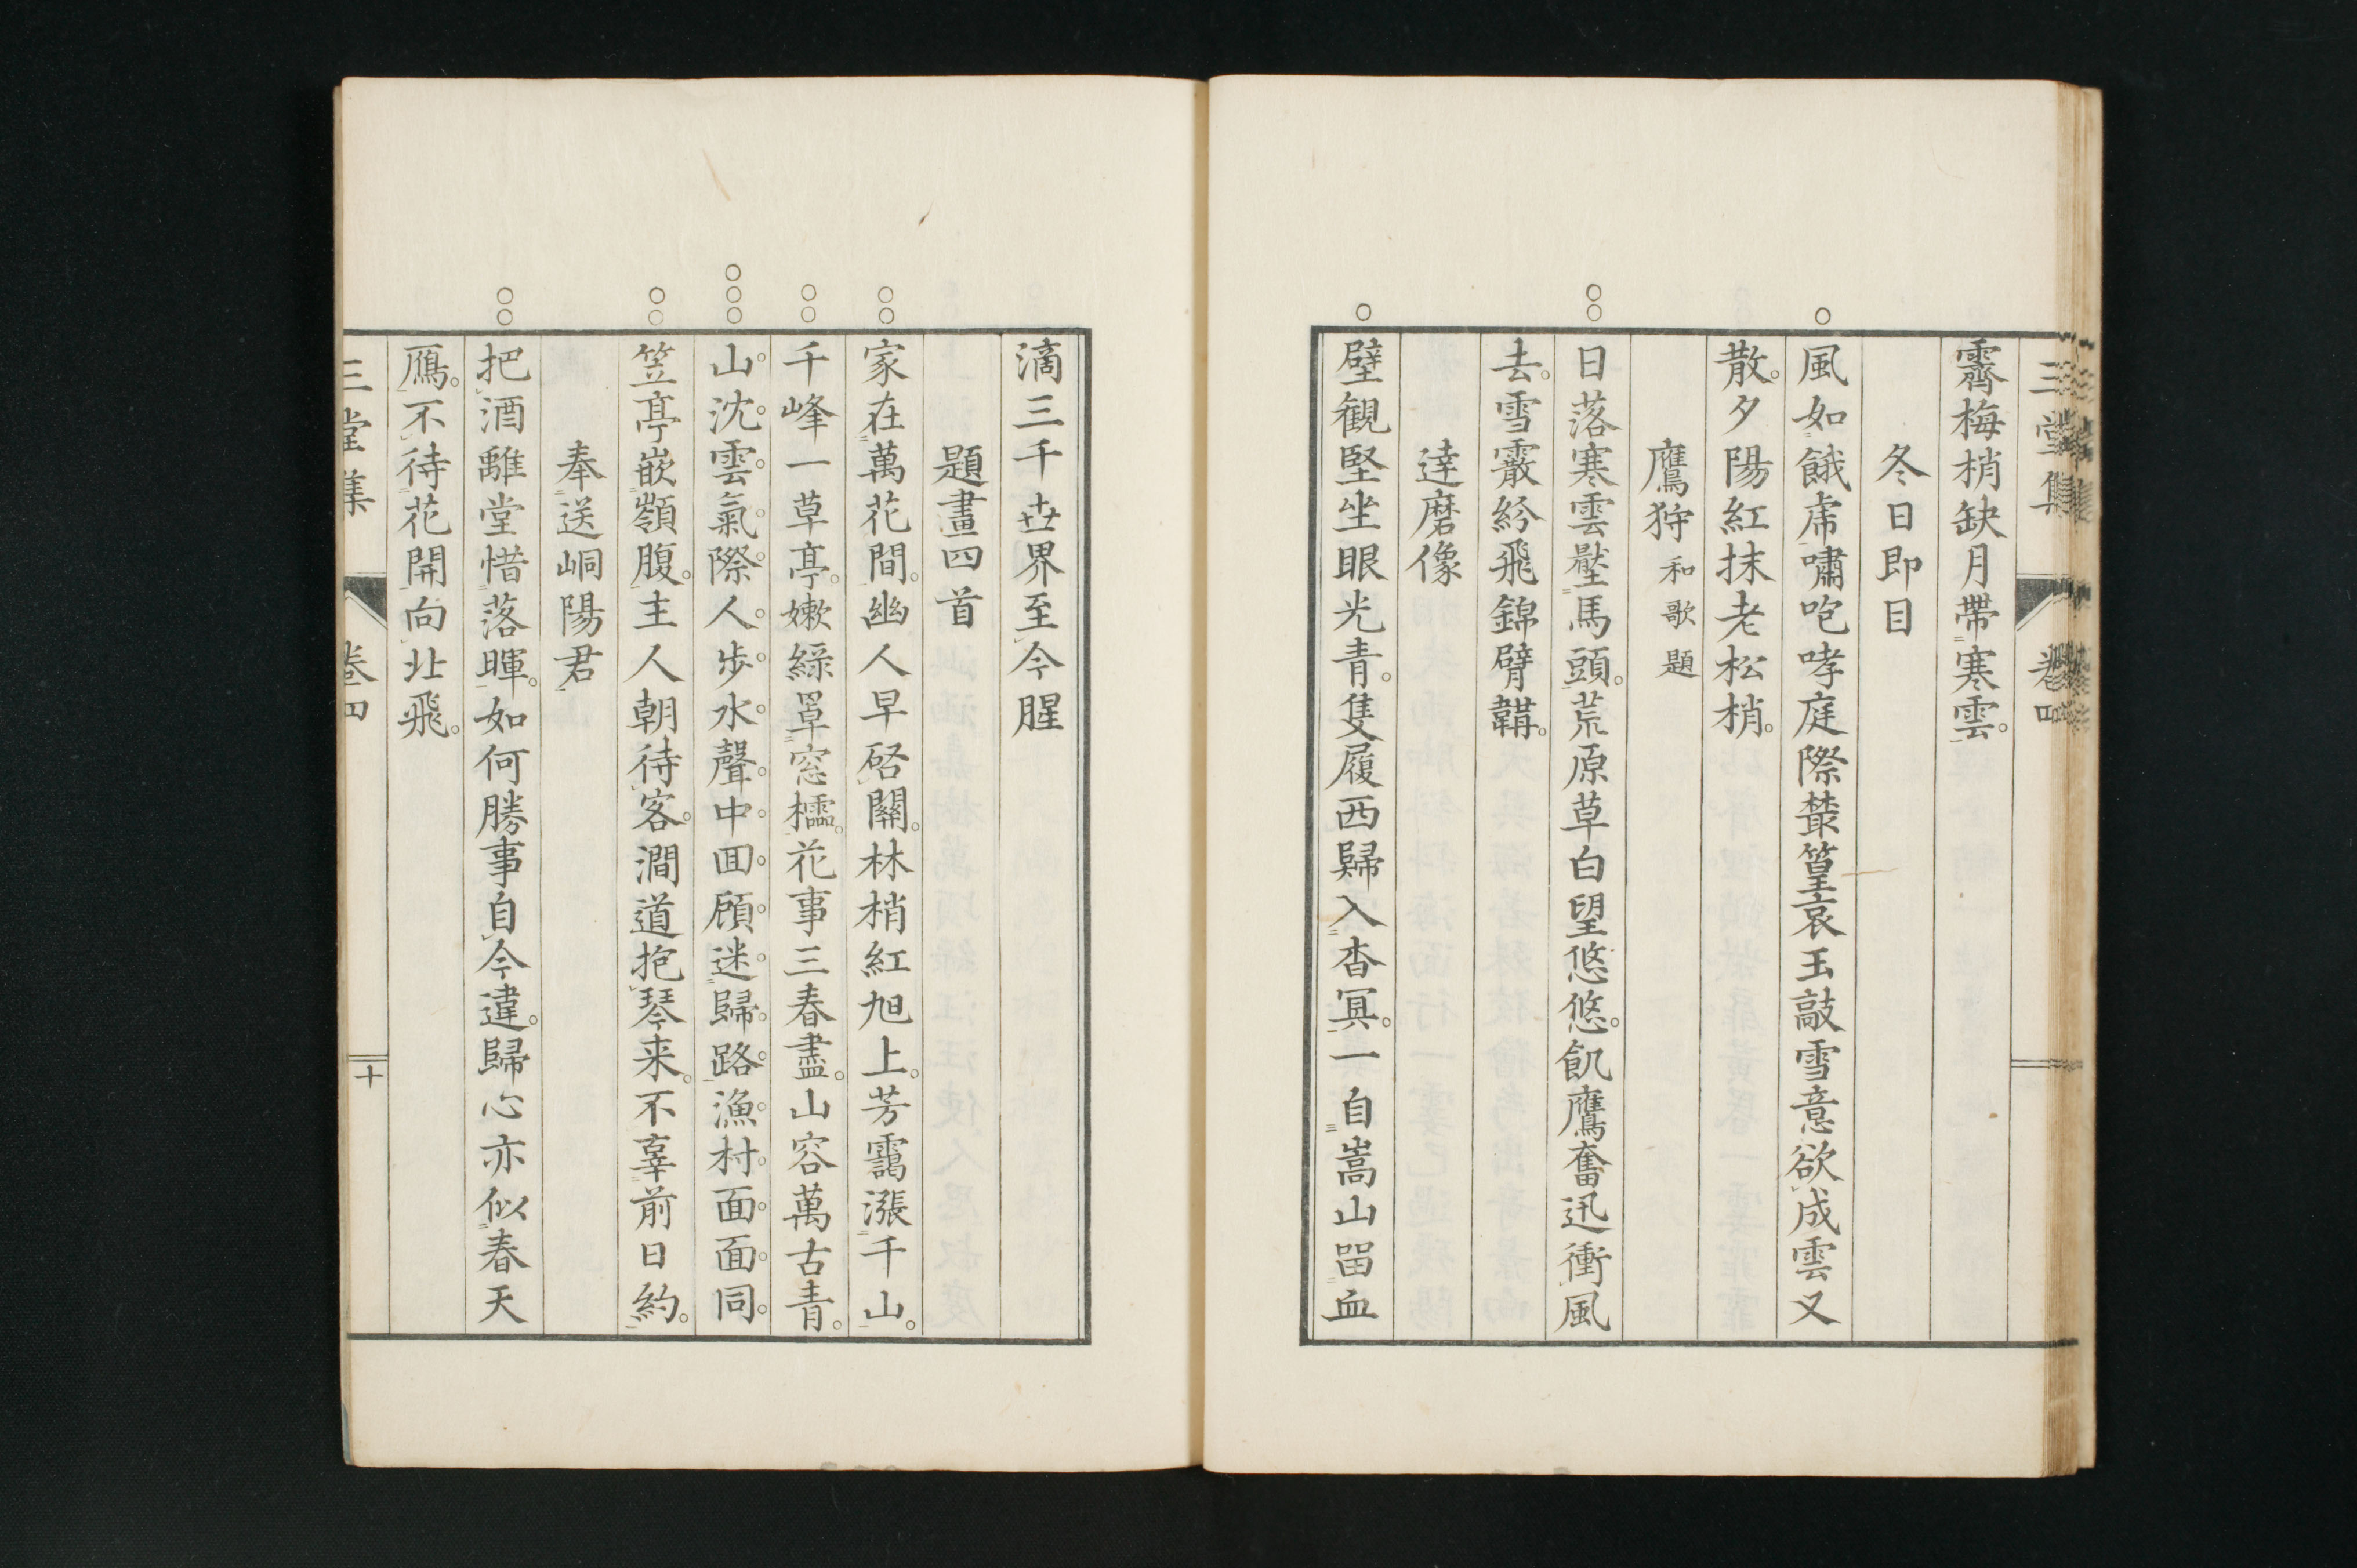 三堂集 卷四
霽梅梢缺月帶寒雲
冬日即目
風如餓虎嘯咆哮庭際叢篁哀玉敲雪意欲成雲又
散夕陽紅抹老松梢
鷹狩 和歌題
日落寒雲壓馬頭荒原草白望悠悠飢鷹奮迅衝風
去雪霰紛飛錦臂韝
達磨像
壁観堅坐眼光青隻履西歸入杳冥一自嵩山畱血
滴三千世界至今腥
題畫四首
家在萬花間幽人早啓關林梢紅旭上芳靄漲千山
千峰一草亭嫩綠罩窓櫺花事三春盡山容萬古青
山沈雲氣際人歩水聲中回顧迷歸路漁村面面同
笠亭嵌嶺腹主人朝待客澗道抱琴来不辜前日約
奉送峒陽君
把酒離堂惜落暉如何勝事自今違歸心亦似春天
鴈不待花開向北飛
三堂集 卷四 十